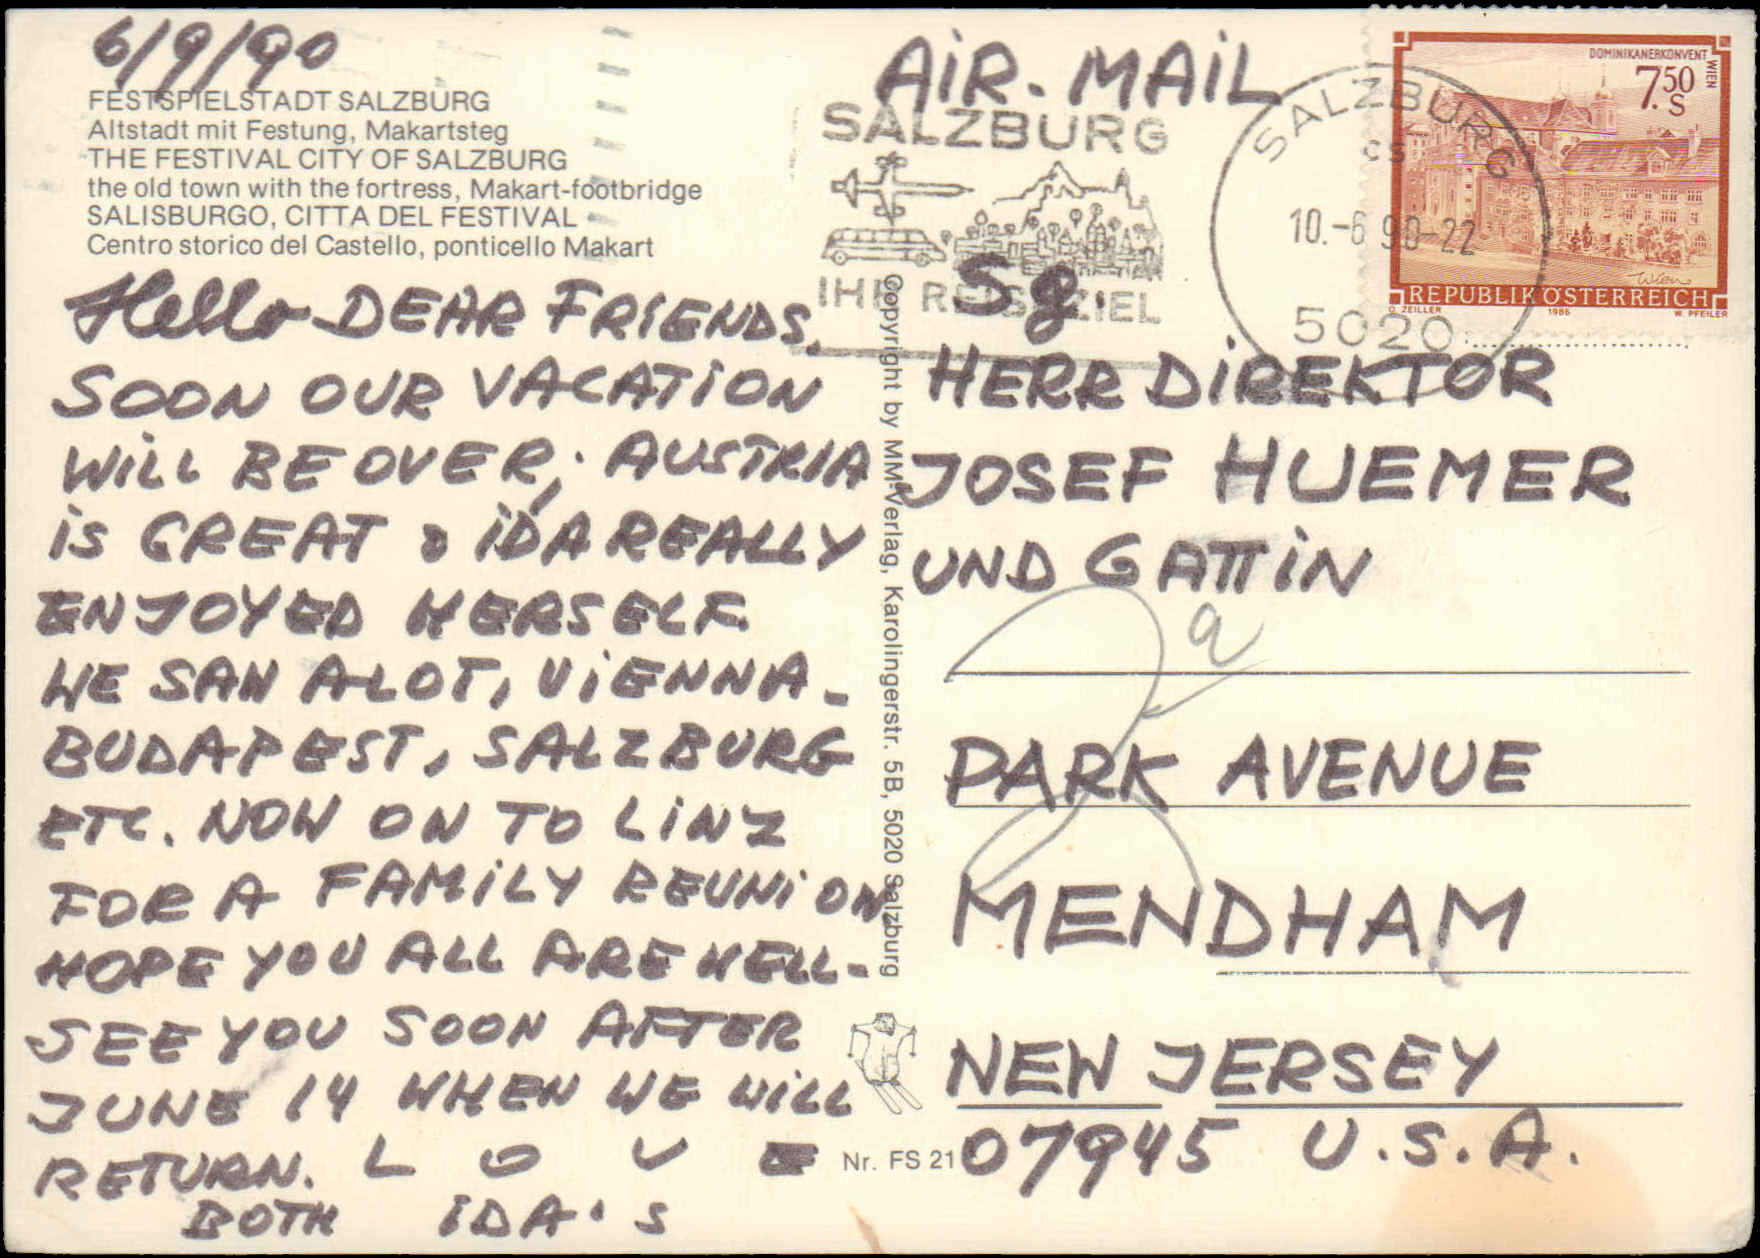 6/9/90
FESTSPIELSTADT SALZBURG
Altstadt mit Festung, Makartsteg
THE FESTIVAL CITY OF SALZBURG
the old town with the fortress, Makart-footbridge
SALISBURGO, CITTA DEL FESTIVAL
Centro storico del Castello, ponticello Makart
Hello DEAR FRIENDS.
SOON OUR VACATION
WILL BE OVER, AUSTRIA
IS GREAT & IDA REALLY
ENJOYED HERSELF.
WE SAW A LOT, VIENNA -
BUDAPEST, SALZBURG
ETC. NOW ON TO LINZ
FOR A FAMILY REUNION
HOPE YOU ALL ARE WELL -
SEE YOU SOON AFTER
JUNE 14 WHEN WE WILL
RETURN. L O V E
BOTH IDA'S
Copyright by MM-Verlag, Karolingerstr. 5B, 5020 Salzburg
Nr. FS 21
AIR-MAIL
SALZBURG
IHR REISEZIEL
SALZBURG
CS
10.-6 90-22
5020
DOMINIKANERKONVENT
WIEN
7.50
S
Wien
REPUBLIK ÖSTERREICH
O. ZEILLER 1986 W. PFEILER
Sg.
HERR DIREKTOR
JOSEF HUEMER
UND GATTIN
PARK AVENUE
MENDHAM
NEW JERSEY
07945 U.S.A.